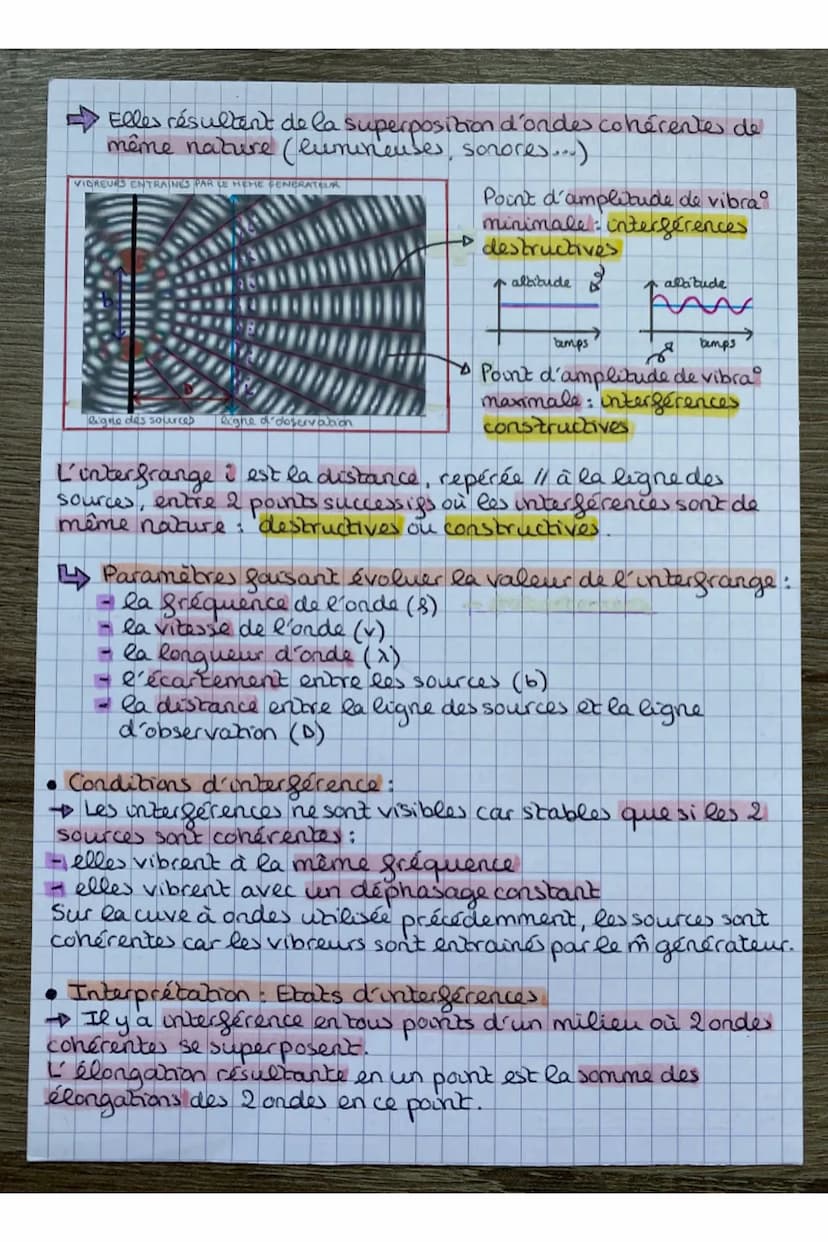 Elles résultent de la superposition d'ondes cohérentes de
même nature (lumineuses, sonores...)
VIBREURS ENTRAÎNÉS PAR LE MÊME GÉNÉRATEUR
b
D
ligne des sources
ligne d'observation
Point d'amplitude de vibra°
minimale : interférences
destructives
altitude
temps
altitude
temps
Point d'amplitude de vibra°
maximale : interférences
constructives
L'interfrange i est la distance, repérée // à la ligne des
sources, entre 2 points successifs où les interférences sont de
même nature : destructives ou constructives.
Paramètres faisant évoluer la valeur de l'interfrange :
- la fréquence de l'onde (f)
- la vitesse de l'onde (v)
- la longueur d'onde (λ)
- l'écartement entre les sources (b)
- la distance entre la ligne des sources et la ligne
d'observation (D)
• Conditions d'interférence :
→ Les interférences ne sont visibles car stables que si les 2
sources sont cohérentes :
- elles vibrent à la même fréquence
- elles vibrent avec un déphasage constant
Sur la cuve à ondes utilisée précédemment, les sources sont
cohérentes car les vibreurs sont entrainés par le m̂ générateur.
• Interprétation : Etats d'interférences
→ Il y a interférence en tous points d'un milieu où 2 ondes
cohérentes se superposent.
L'élongation résultante en un point est la somme des
élongations des 2 ondes en ce point.